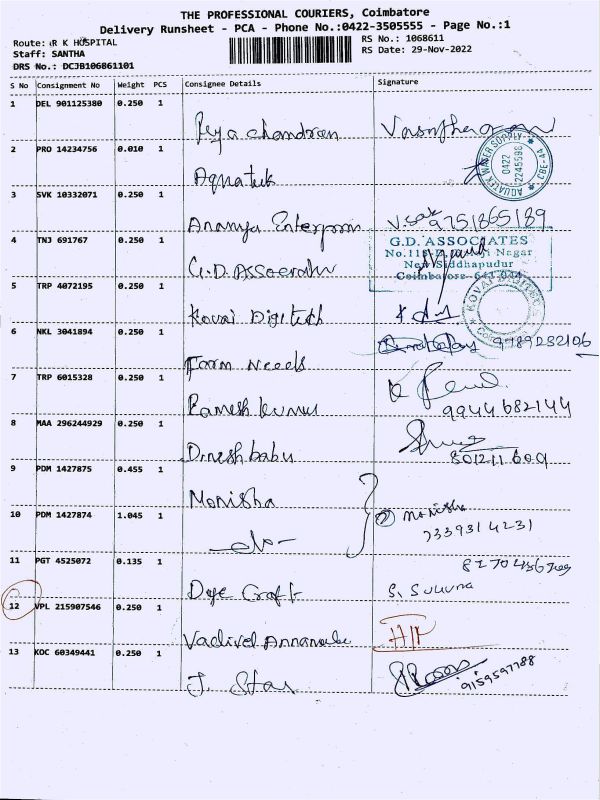 THE PROFESSIONAL COURIERS, Coimbatore
Delivery Runsheet - PCA - Phone No.:0422-3505555 - Page No.:1
Route: R K HOSPITAL
Staff: SANTHA
DRS No.: DCJB106861101
RS No.: 1068611
RS Date: 29-Nov-2022
S No Consignment No Weight PCS Consignee Details Signature
1 DEL 901125380 0.250 1
chandran
2 PRO 14234756 0.010 1
Aquatek
AQUATEK WATER SUPPLY
0422
2245598
CBE-44
3 SVK 10332071 0.250 1
Ananya Enterprises
9751865189
4 TNJ 691767 0.250 1
G.D. Associates
G.D. ASSOCIATES
Nagar
New Siddhapudur
Coimbatore-641 044
5 TRP 4072195 0.250 1
Kovai Digitech
KOVAI
6 NKL 3041894 0.250 1
Farm Needs
9789282106
7 TRP 6015328 0.250 1
Ramesh kumar
9944682144
8 MAA 296244929 0.250 1
Dinesh babu
9 PDM 1427875 0.455 1
Monisha
10 PDM 1427874 1.045 1
Monisha
7339314231
11 PGT 4525072 0.135 1
Craft
12 VPL 215907546 0.250 1
Vadivel
13 KOC 60349441 0.250 1
J. Star
9159597788